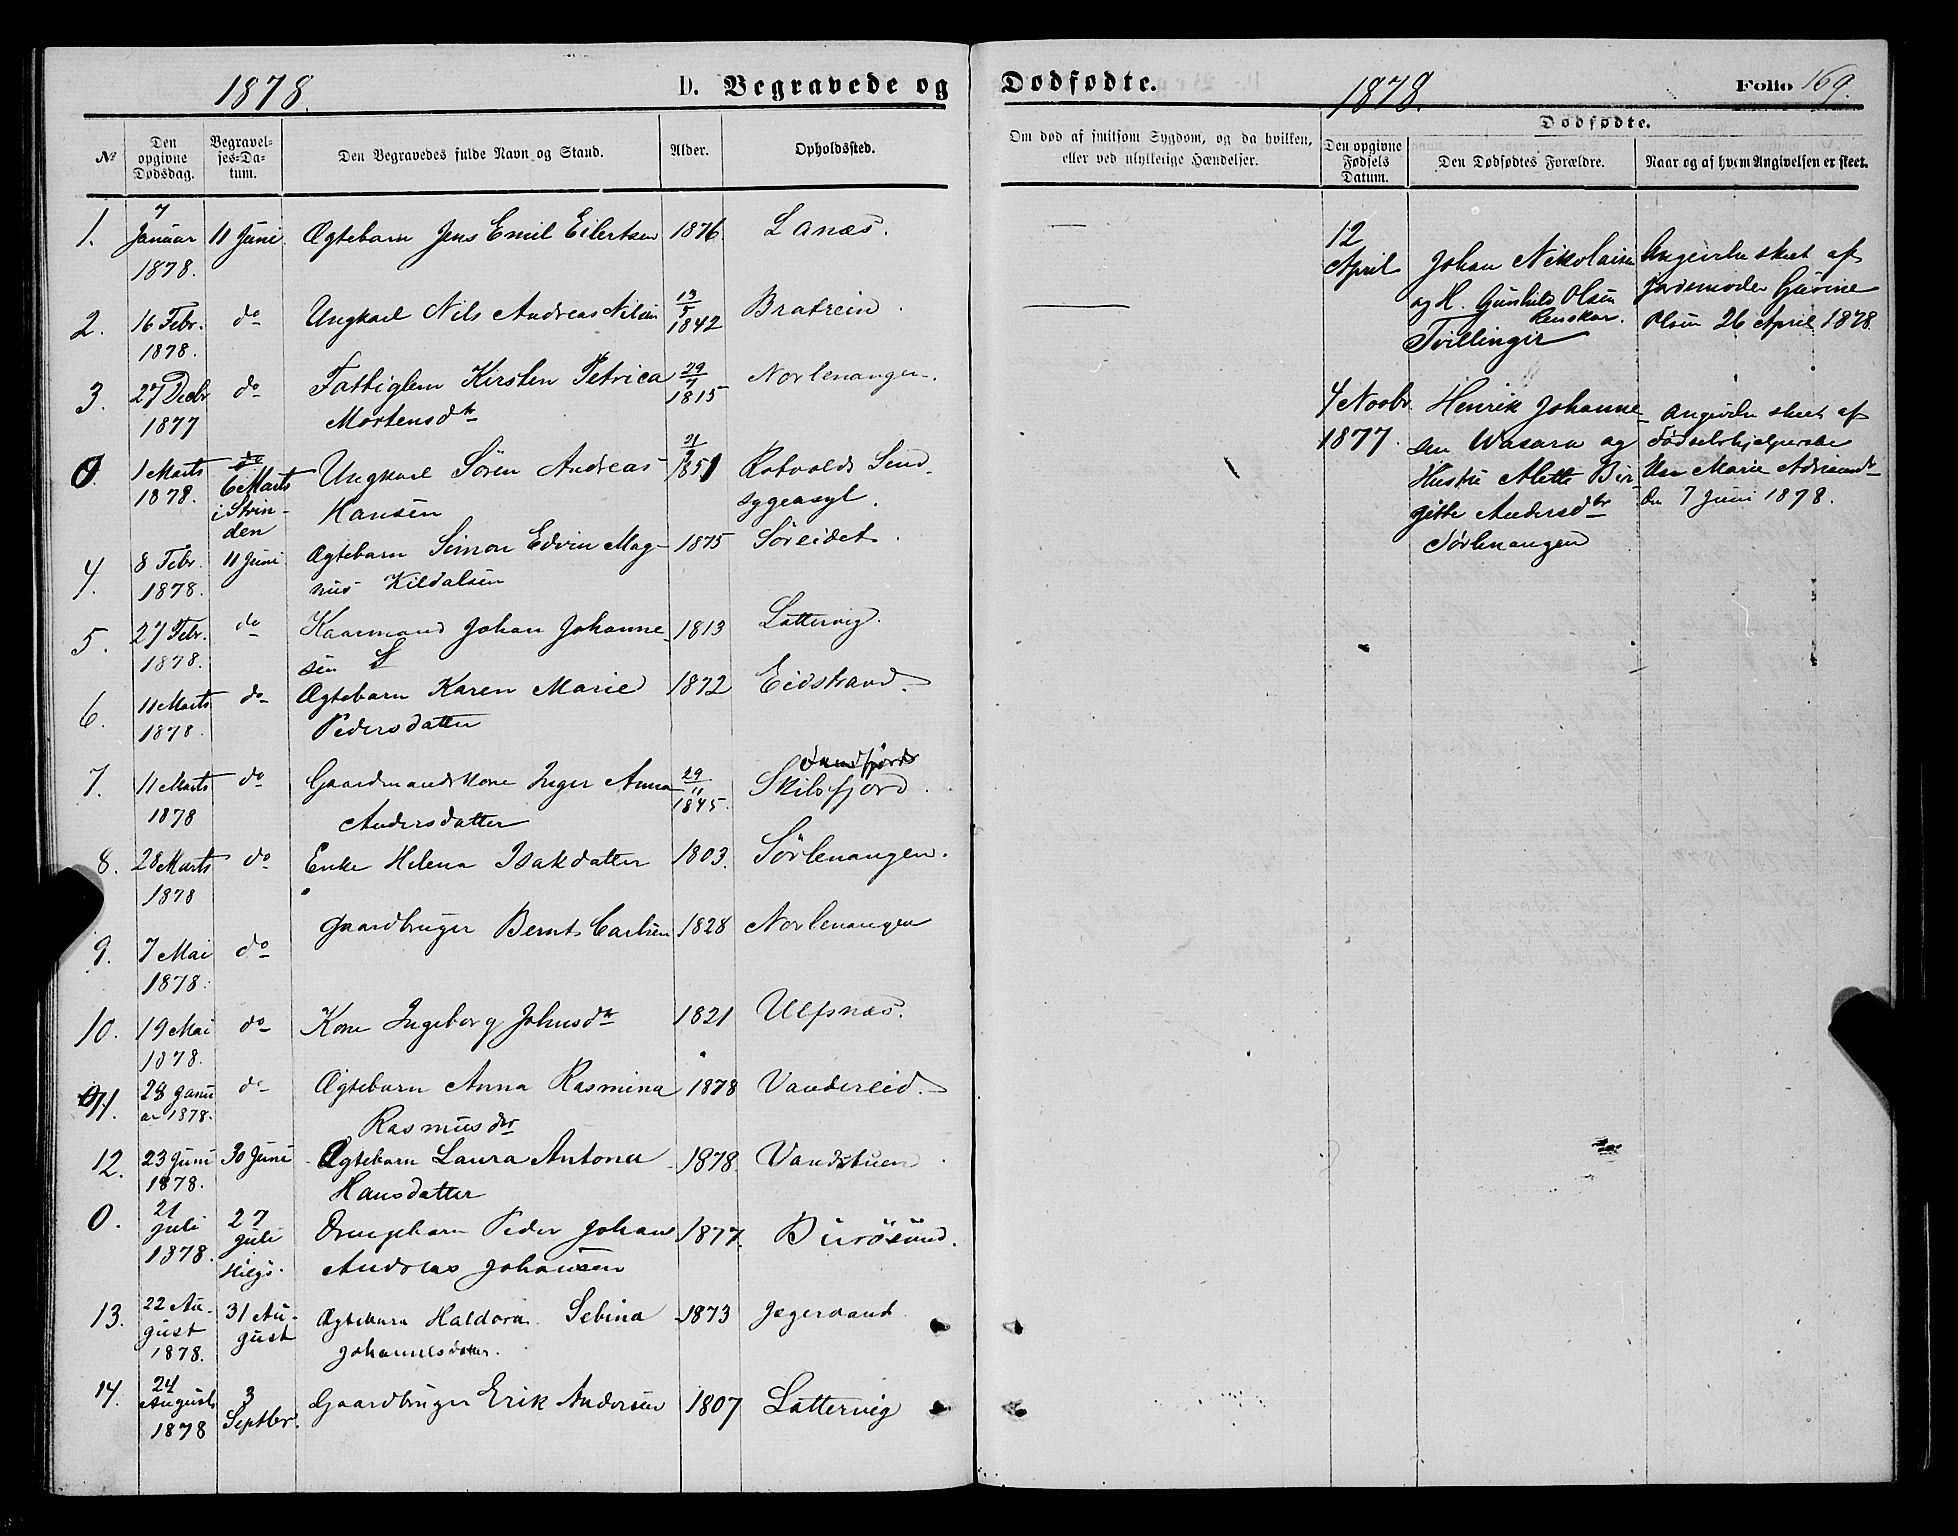 1878.
D. Begravede og
Dødfødte.
1878.
Folio 169.
№
Den opgivne Dødsdag.
Begravelses-Datum.
Den Begravedes fulde Navn og Stand.
Alder.
Opholdssted.
Om død af smitsom Sygdom, og da hvilken,
eller ved ulykkelige Hændelser.
Dødfødte.
Den opgivne Fødsels Datum.
Den Dødfødtes Forældre.
Naar og af hvem Angivelsen er skeet.
1. 7 Januar 1878. 11 Juni Ægtebarn Jens Emil Eilertsen 1876. Lanæs.
2. 16 Febr. 1878. do Ungkarl Nils Andreas Nilsen 13/5 1842 Bratrein.
3. 27 Decbr 1877 do Fattiglem Kirsten Petrica
Mortensdtr 29/7 1815 Norlenangen.
0. 1 Marts 1878. do 6 Marts i Strinden Ungkarl Sören Andreas
Hansen 1851 Rotvolds Sindsygeasyl.
4. 8 Febr. 1878. 11 Juni Ægtebarn Simon Edvin Mag-
nus Kildalsen 1875 Sörleidet.
5. 27 Febr. 1878. do Kaarmand Johan Johanne-
sen 1813 Lattervig.
6. 11 Marts 1878. do Ægtebarn Karen Marie
Pedersdatter 1872 Eidstrand.
7. 11 Marts 1878 do Gaardmandskone Inger Anna
Andersdatter 29/11 1845. Skilsfjord.
8. 28 Marts 1878 do Enke Helena Isakdatter 1803. Sörlenangen.
9. 7 Mai 1878. do Gaardbruger Bernt Carlsen 1828 Norlenangen
10. 19 Mai 1878. do Kone Ingeborg Johnsdtr 1821 Ulfsnæs.
11. 28 Januar 1878. do Ægtebarn Anna Rasmina
Rasmusdtr 1878 Vandereid.
12. 23 Juni 1878. 30 Juni Ægtebarn Laura Antona
Hansdatter 1878. Vandstuen
0. 21 Juli 1878. 27 Juli Drengebarn Peder Johans
Andreas Johansen 1877. Burösund.
13. 22 August 1878. 31 August Ægtebarn Haldora Sebina
Johannesdatter. 1873 Jægervand.
14. 24 August 1878 3 Septbr. Gaardbruger Erik Andersen 1807 Lattervig
12 April Johan Nikolaisen
og H. Gunhild Olsen
Renskar.
Tvillinger
Angivelse skeet af
Jordmoder Gurine
Olsen 26 April 1878.
4 Novbr. 1877. Henrik Johanne-
sen Wasara og
Hustru Alette Bir-
gitte Andersdtr
Sörlenangen
Angivelse skeet af
Födselshjelperske
Marie
den 7 Juni 1878.